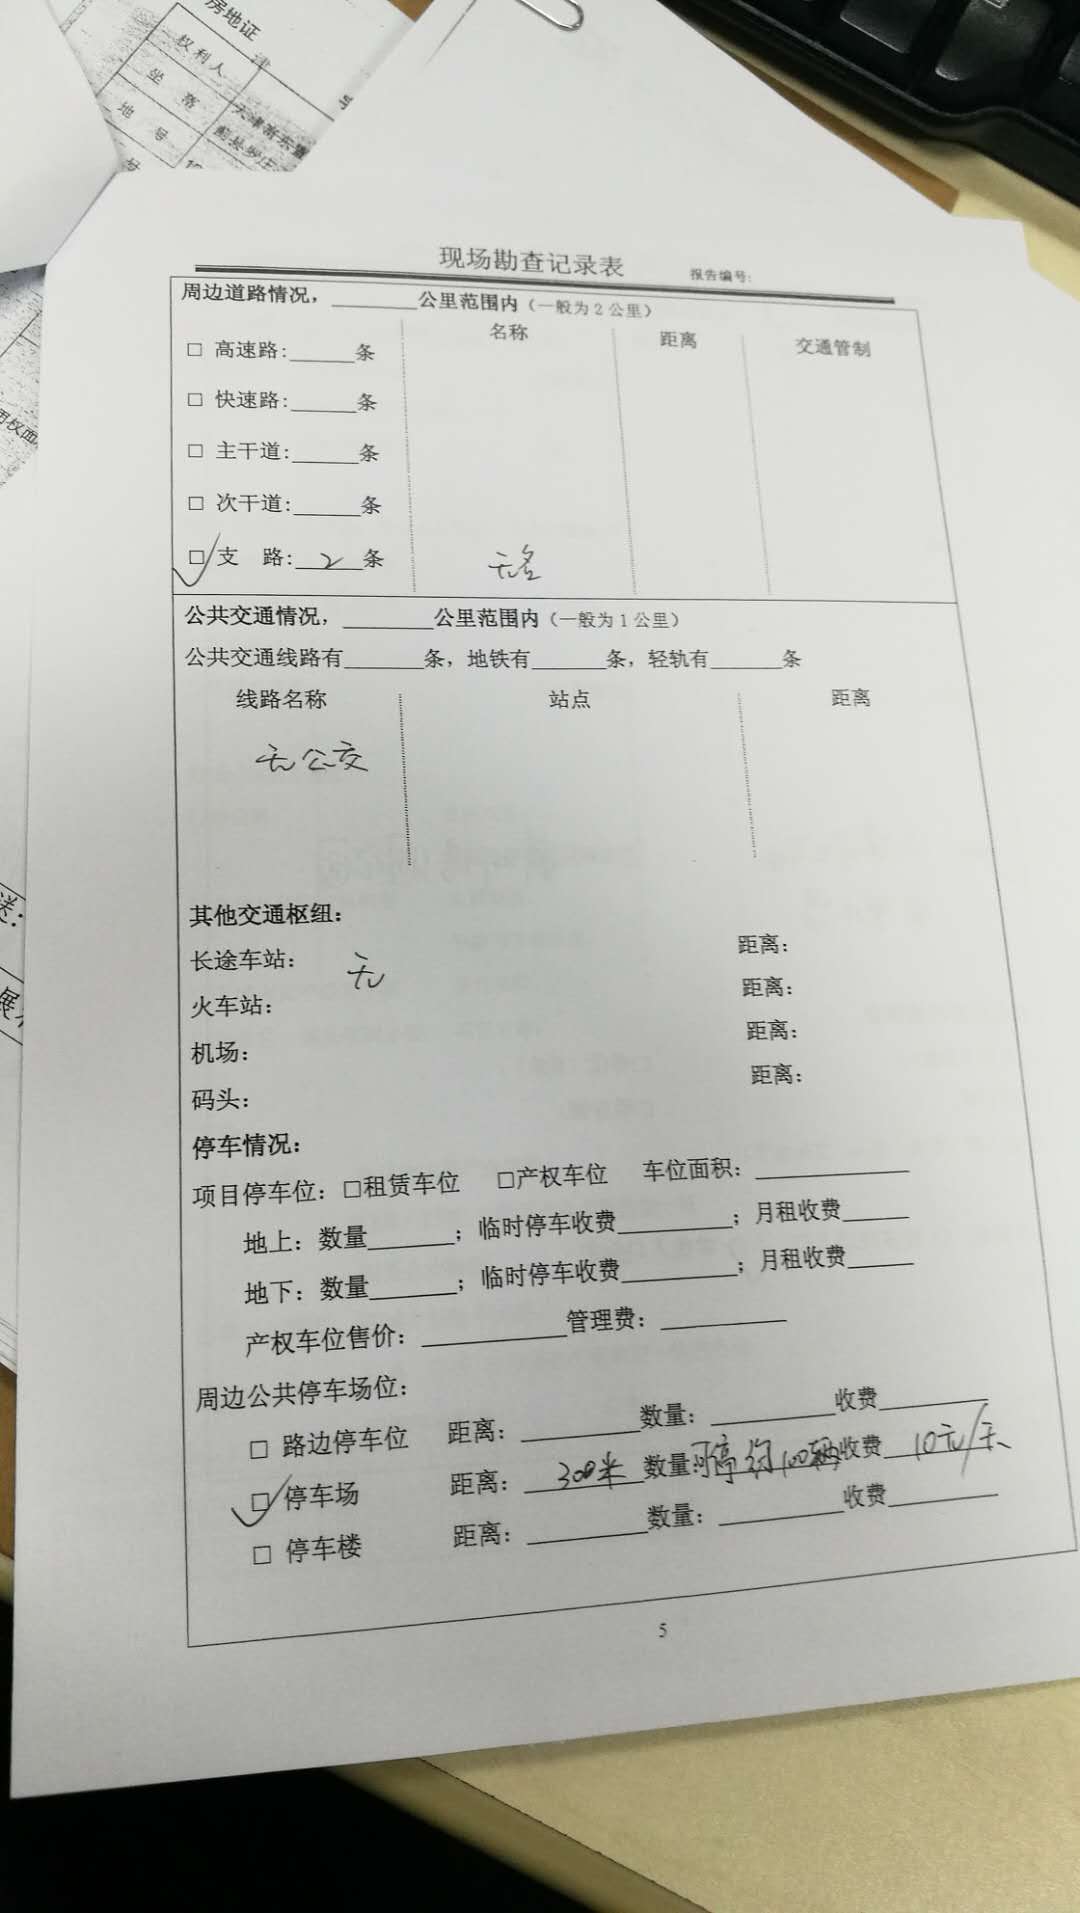 房地证 津
权利人
坐落 天津市东
蓟县罗庄
地号
现场勘查记录表 报告编号:
周边道路情况，________公里范围内（一般为2公里）
名称 距离 交通管制
□ 高速路:______条
□ 快速路:______条
□ 主干道:______条
□ 次干道:______条
☑ 支 路: 2 条 无名
公共交通情况，________公里范围内（一般为1公里）
公共交通线路有_______条，地铁有_______条，轻轨有_______条
线路名称 站点 距离
无公交
其他交通枢纽：
长途车站： 无 距离：
火车站： 距离：
机场： 距离：
码头： 距离：
停车情况：
项目停车位：□租赁车位 □产权车位 车位面积：____________
地上：数量_______；临时停车收费_________；月租收费_____
地下：数量_______；临时停车收费_________；月租收费_____
产权车位售价：____________管理费：__________
周边公共停车场位：
□ 路边停车位 距离：_________数量：__________收费_________
☑ 停车场 距离： 300米 数量 可停约100辆 收费 10元/天
□ 停车楼 距离：_________数量：__________收费_________
5